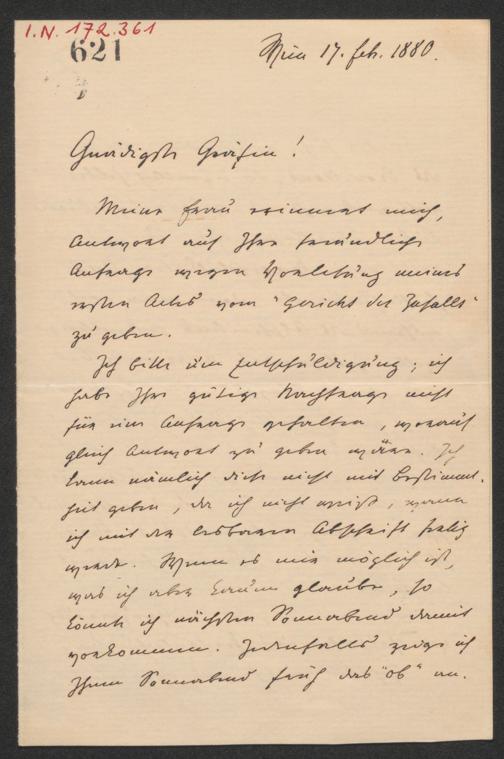 I.N. 172.361
621
Wien 17. Feb. 1880.
Gnädigste Gräfin!
Meine Frau erinnert mich,
Antwort auf Ihre freundliche
Anfrage wegen Vorlesung meines
ersten Actes vom "Gericht des Zufalls"
zu geben.
Ich bitte um Entschuldigung; ich
habe Ihre gütige Nachfrage nicht
für eine Anfrage gehalten, worauf
gleich Antwort zu geben wäre. Ich
kann nämlich diese nicht mit Bestimmt-
heit geben, da ich nicht weiß, wann
ich mit der lesbaren Abschrift fertig
werde. Wenn es mir möglich ist,
was ich aber kaum glaube, so
könnte ich nächsten Sonnabend damit
vorkommen. Jedenfalls zeige ich
Ihnen Sonnabend früh das "ob" an.